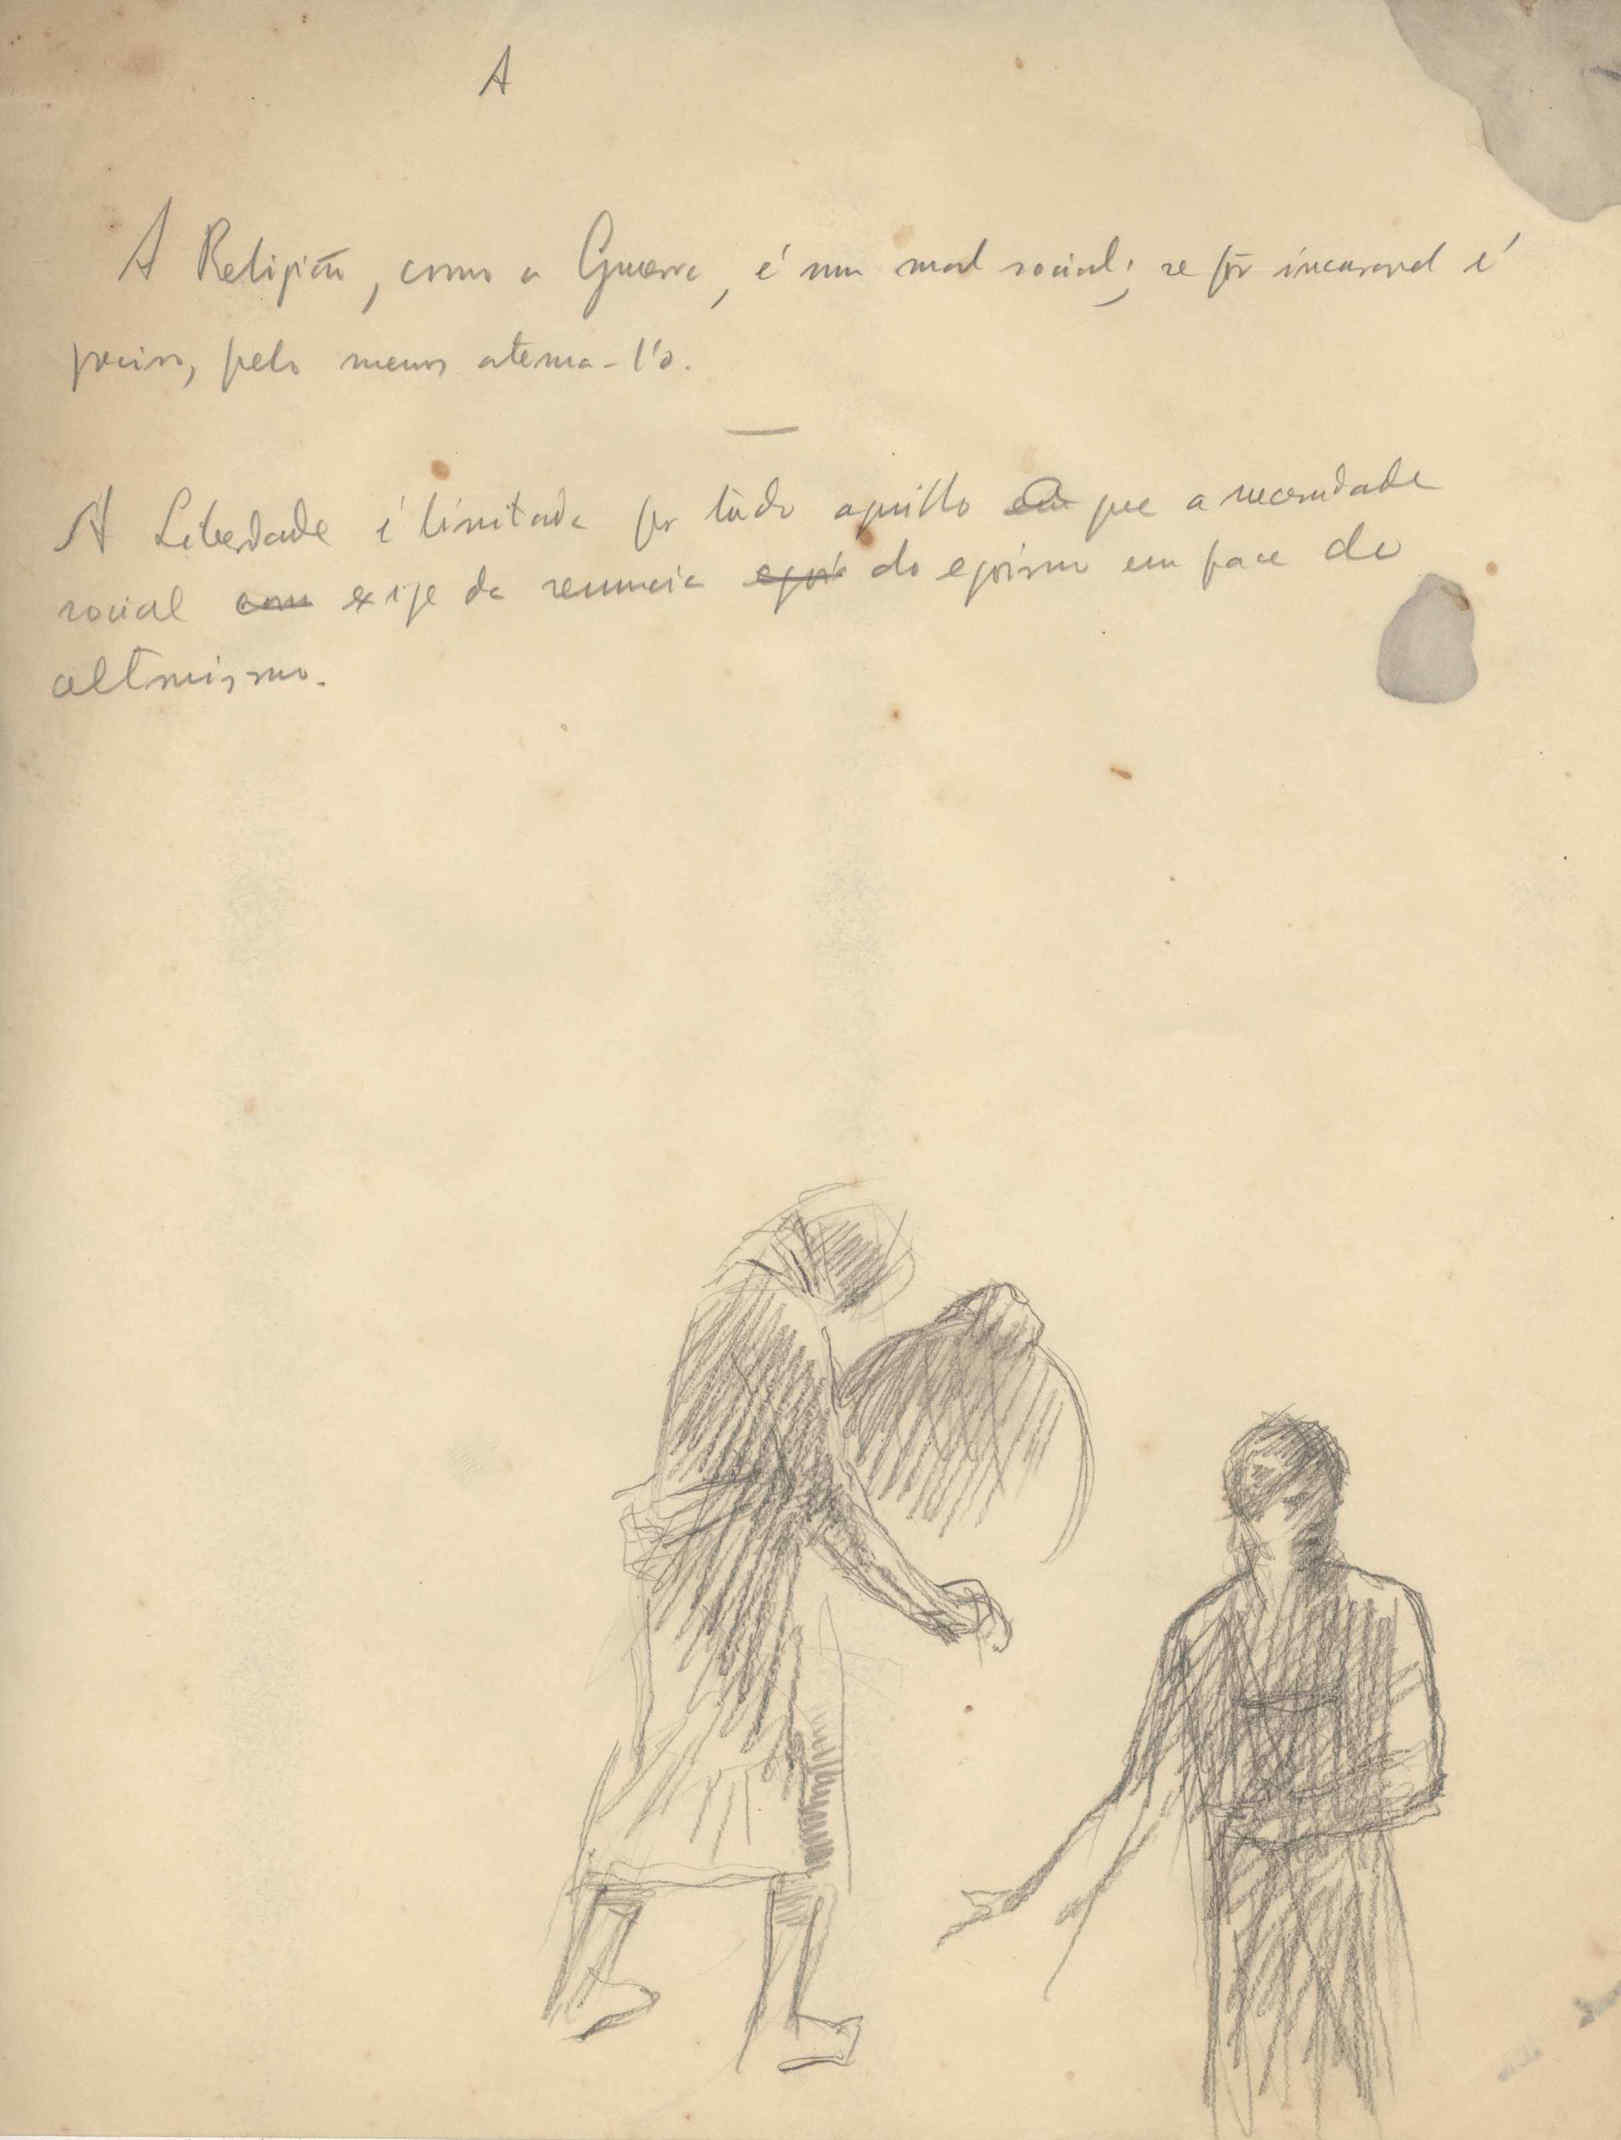 A
A Religião, como a Guerra, é um mal social; se fôr incuravel é
preciso, pelo menos atenua-l'o.
A Liberdade é limitada por tudo aquillo que a necessidade
social com exije da renuncia egoi do egoismo em face do
altruismo.